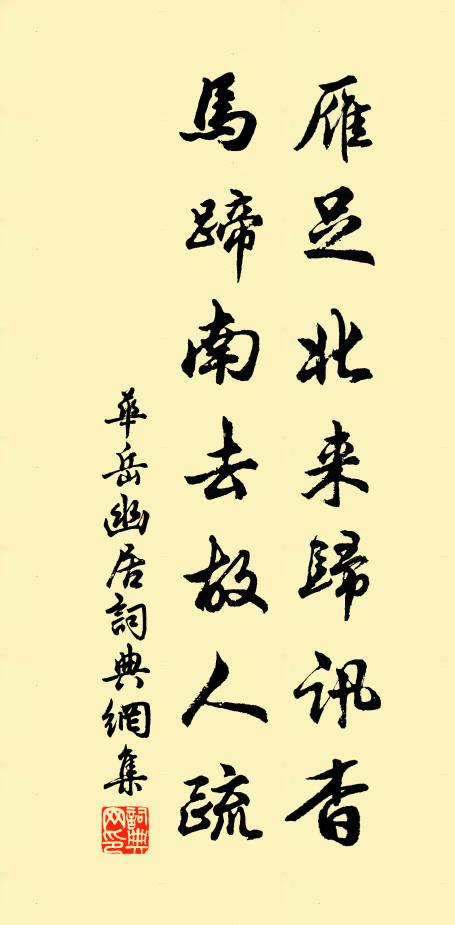 雁足北来歸訊杳
馬蹄南去故人疏
華岳幽居詞典網集
詞典网印